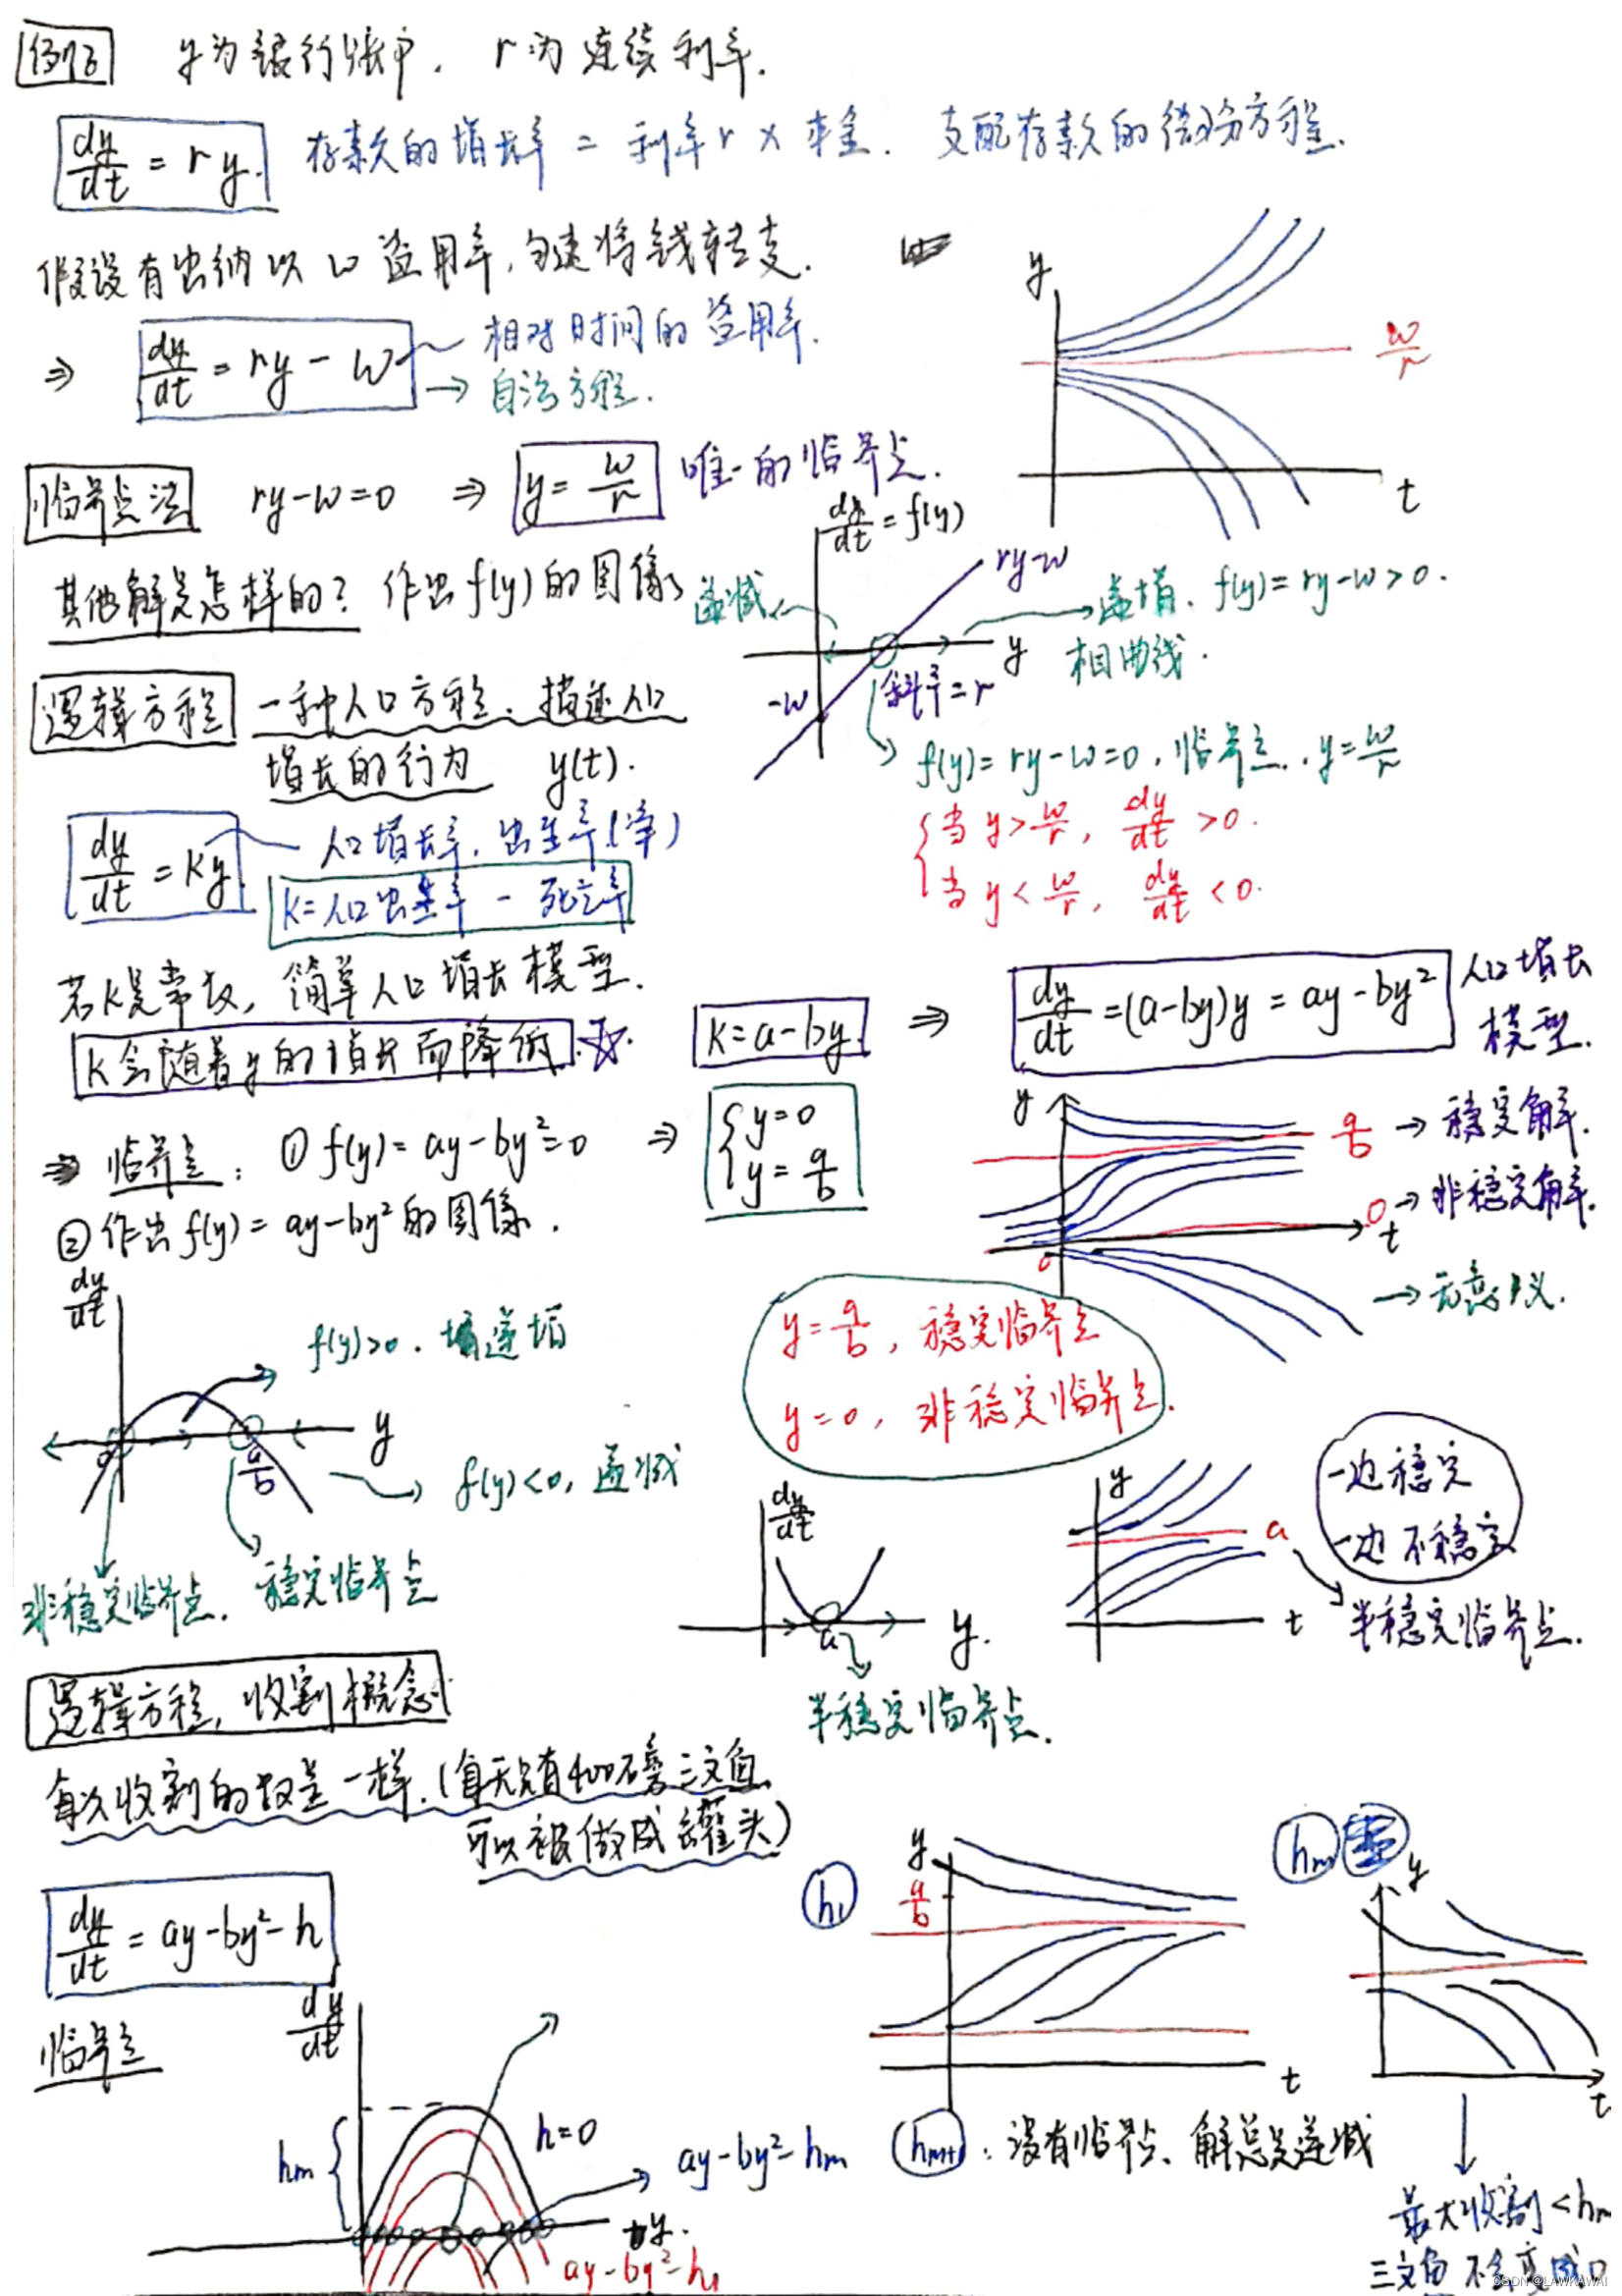 例子 y为银行账户. r为连续利率.
dy/dt = ry. 存款的增长率 = 利率r × 本金. 支配存款的微分方程.
假设有出纳以 w 盗用率, 匀速将钱转走.
⇒ dy/dt = ry - w 相对时间的盗用率.
→ 自治方程.
y
w/r
t
临界点法 ry-w=0 ⇒ y = w/r 唯一的临界点.
其他解是怎样的? 作出f(y)的图像
dy/dt = f(y)
ry-w
递减
递增. f(y)=ry-w>0.
y 相曲线.
-w
斜率=r
f(y)=ry-w=0, 临界点. y=w/r
{当 y>w/r, dy/dt >0.
当 y<w/r, dy/dt <0.
逻辑方程 一种人口方程. 描述人口
增长的行为 y(t).
dy/dt = ky 人口增长率. 出生率(净)
k=人口出生率 - 死亡率
若k是常数, 简单人口增长模型.
k会随着y的增长而降低. ☆.
k=a-by. ⇒ dy/dt =(a-by)y = ay-by² 人口增长
模型.
⇒ 临界点: ① f(y)= ay-by²=0 ⇒ {y=0
y=a/b
② 作出f(y)= ay-by²的图像.
y
a/b → 稳定解.
0 → 非稳定解.
t
0
→ 无意义.
dy/dt
f(y)>0. 递增
y
0
a/b
f(y)<0, 递减
非稳定临界点. 稳定临界点
y=a/b, 稳定临界点
y=0, 非稳定临界点.
dy/dt
a
y.
半稳定临界点.
y
a
t
一边稳定
一边不稳定
半稳定临界点.
逻辑方程, 收割概念
每次收割的数是一样.(每天只有400磅三文鱼
可以被做成罐头)
dy/dt = ay-by²-h
临界点
dy/dt
hm
h=0
ay-by²-hm
y.
ay-by²-h₁
h₁
y
a/b
t
hm
y
t
hm+1 : 没有临界点、解总是递减
最大收割<hm
三文鱼不会变成0
CSDN @LAWKAWAI